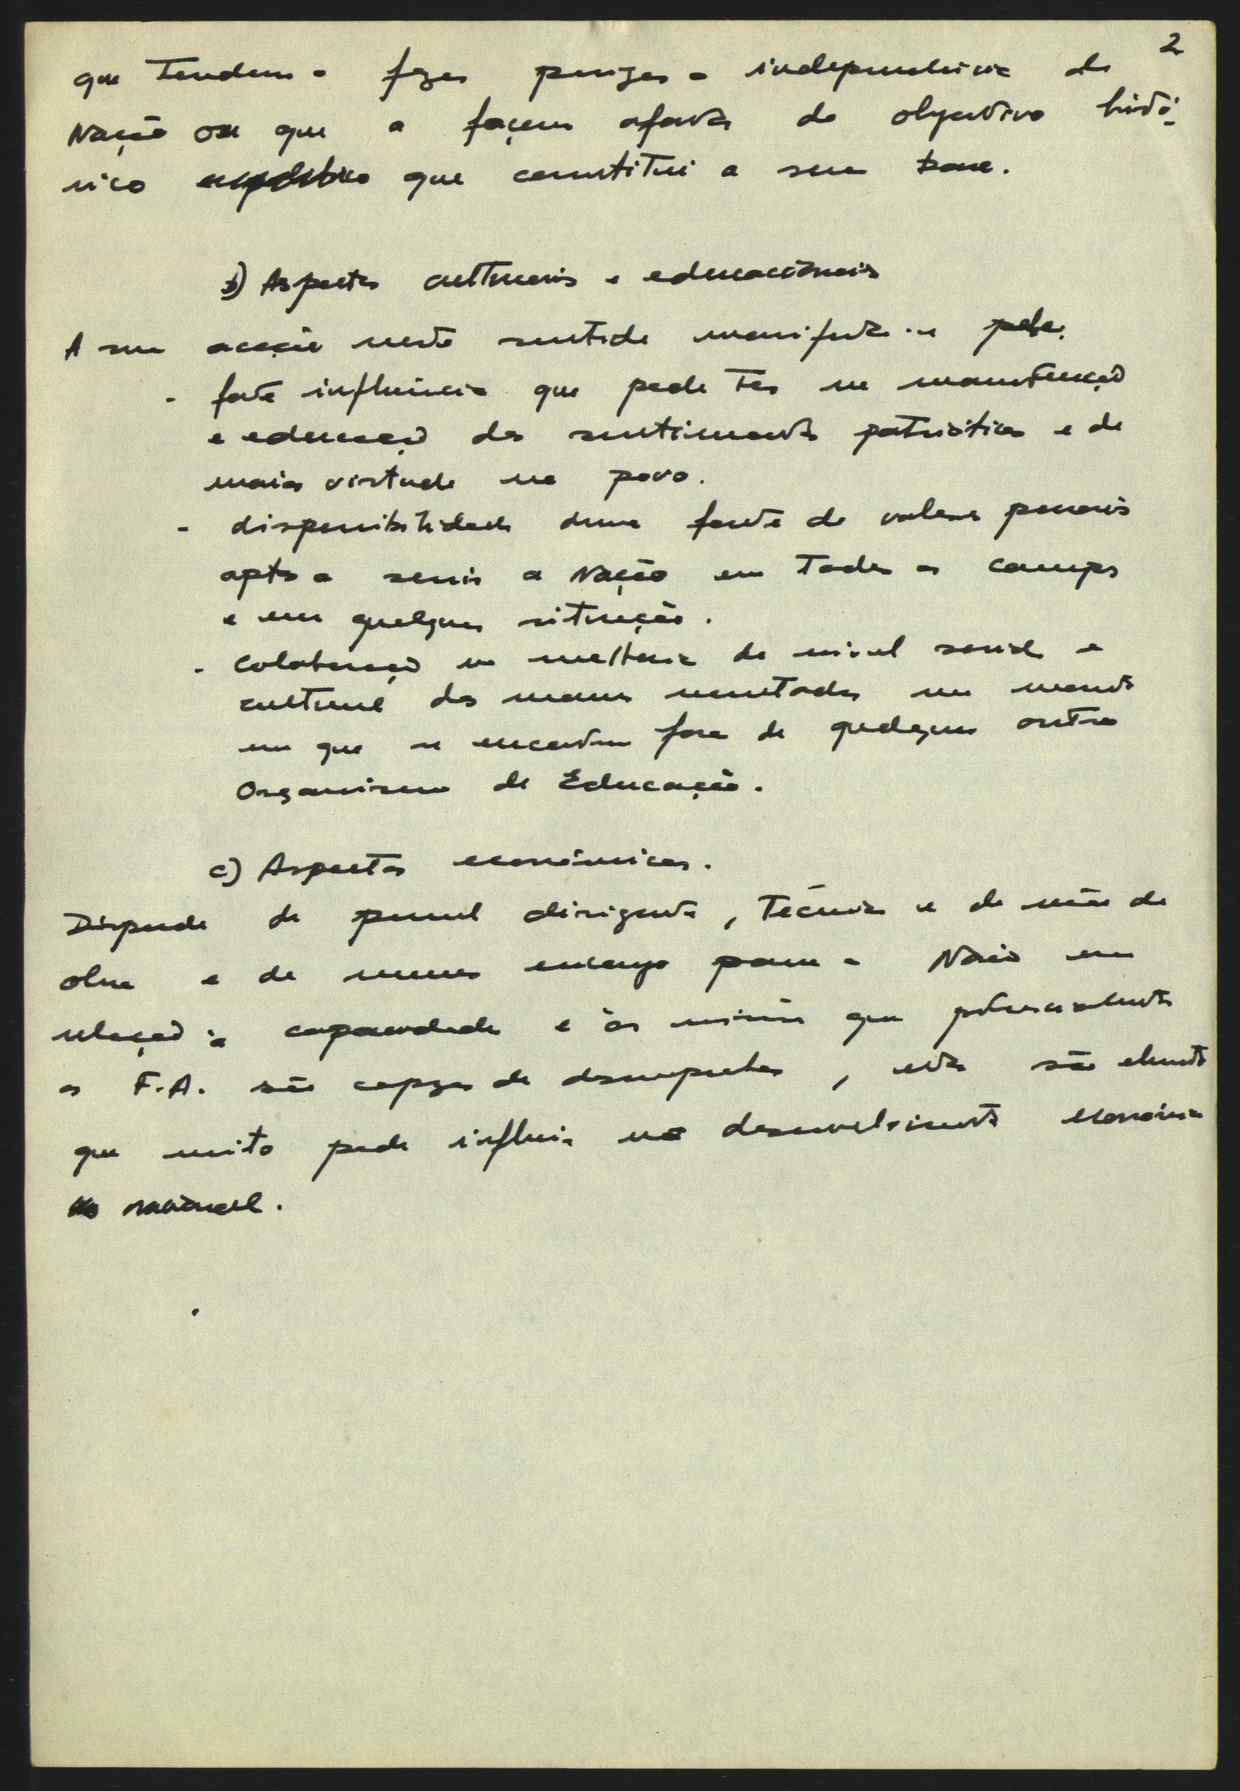 2
que tendem a fazer perigar a independência da
Nação ou que a façam afastar do objectivo histó-
rico que constitui a sua base.
b) Aspectos culturais e educacionais
A sua acção neste sentido manifesta-se pela:
- forte influência que pode ter na manutenção
e educação dos sentimentos patrióticos e de
maior virtude no povo.
- disponibilidade duma fonte de valores pessoais
aptos a servir a Nação em todos os campos
e em qualquer situação.
- colaboração na melhoria do nível social e
cultural das massas recrutadas no momento
em que se encontram fora de qualquer outro
Organismo de Educação.
c) Aspectos económicos.
Dispondo de pessoal dirigente, técnico e de mão de
obra e de menos encargo para a Nação em
relação à capacidade e às missões que potencialmente
as F.A. são capazes de desempenhar, estas são elemento
que muito pode influir no desenvolvimento económico
nacional.